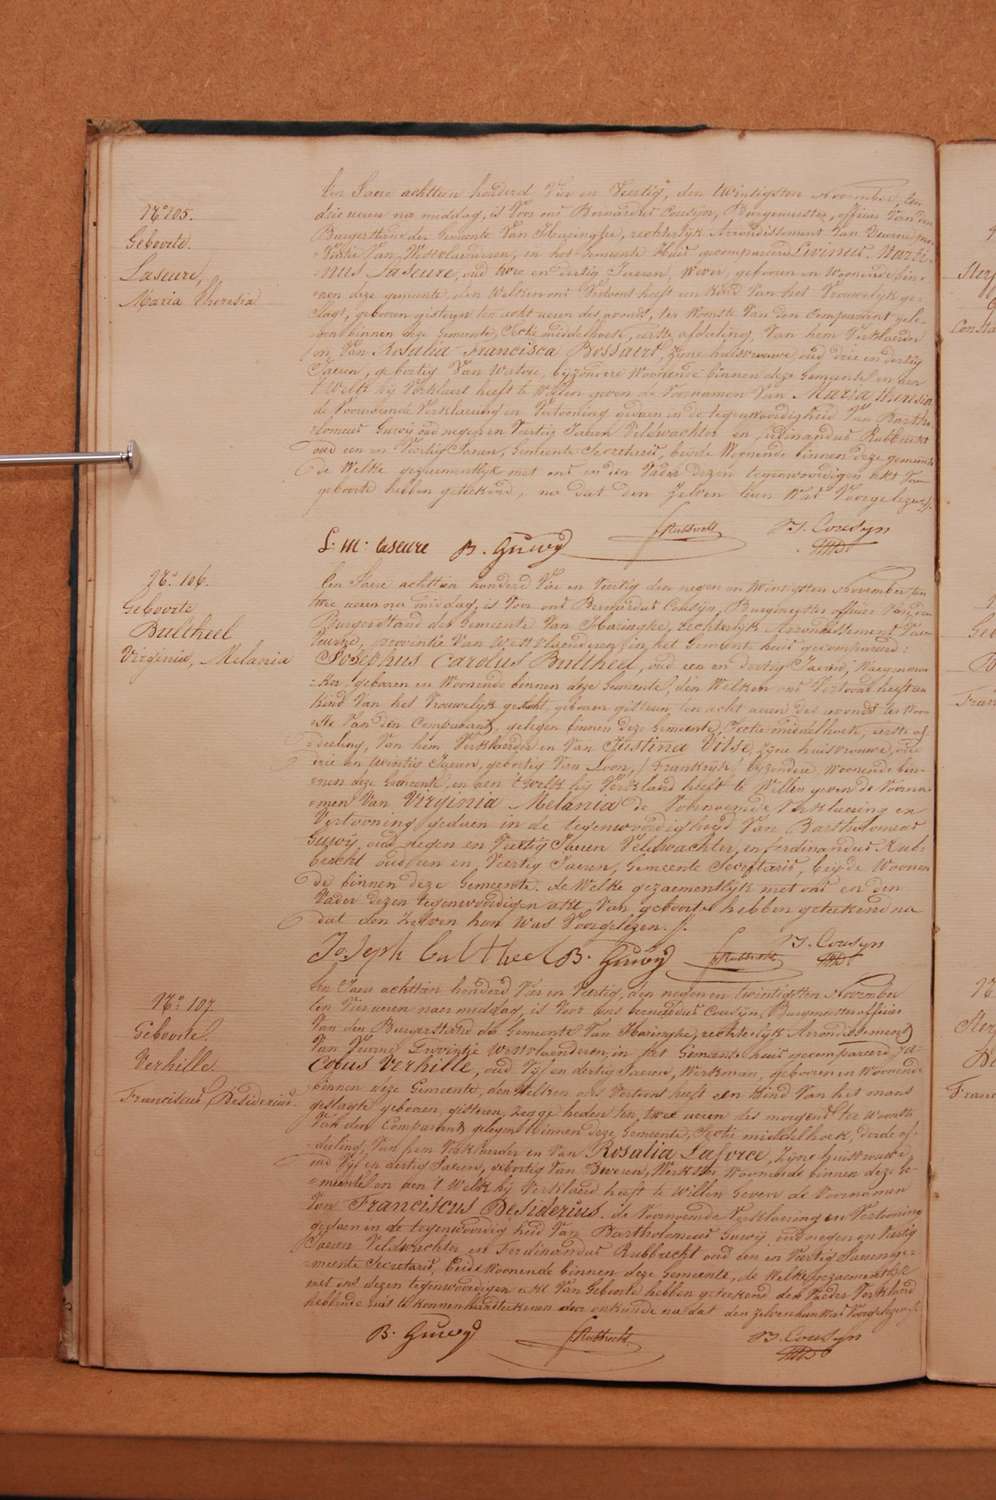 N.º 105.
Geboorte.
Laseure,
Maria Theresia
Een Jaere achttien honderd Vier en Veertig, den twintigsten November, ten
drie ueren na middag, is Voor ons Bernardus Cousyn, Burgemeester, officier Van den
Burgerstand der Gemeente Van Haringhe, rechterlyk Arrondissement Van Veurne, pro-
-vintie Van Westvlaenderen, in het Gemeente Huis gecompareerd Livinus Marti-
nus Laseure, oud twee en dertig Jaeren, Wever, geboren en Woonende bin-
-nen deze gemeente, den Welken ons Vertoont heeft een Kind Van het Vrouwelyk ge-
slagt, geboren gisteren ten acht ueren des avonds, ter Woonste Van den Comparant gele-
gen binnen deze Gemeente, Sectie middelhoek, eerste afdeling, Van hem Verklaerder
en Van Rosalia Francisca Bossaert, zyne huisvrouwe, oud drie en dertig
Jaeren, gebortig Van Watou, byzondere Woonende binnen deze Gemeente en aen
't Welk hy Verklaert heeft te Willen geven de Voornamen Van Maria Theresia
de Voornoemde Verklaering en Vertooning gedaen in de tegenwoordigheid Van Bartho-
lomeus Guwy oud negen en Veertig Jaeren Veldwachter en Ferdinandus Rubbrecht
oud een en Veertig Jaeren, Gemeente Secretaris, beide Woonende binnen deze gemeente
de Welke gezamentlyk met ons en den Vader dezen tegenwoordigen akt Van
geboorte hebben geteekend, na dat den Zelven hun Was Voorgelezen.
L. M. Laseure B. Guwy F. Rubbrecht B. J. Cousyn
N.º 106.
Geboorte
Bultheel
Virginia, Melania
Een Jaere achttien honderd Vier en Veertig den negen en twintigsten November ten
twee ueren na middag, is Voor ons Bernardus Cousyn, Burgmeester officier Van den
Burgerstand der Gemeente Van Haringhe, rechterlyk Arrondissement Van
Veurne, provintie Van West Vlaenderen, in het Gemeente huis gecompareerd:
Josephus Carolus Bultheel, oud een en dertig Jaeren, Waegenma-
-ker, geboren en Woonende binnen deze Gemeente, den Welken ons Vertoont heeft een
kind Van het Vrouwelyk geslacht, geboren gisteren ten acht ueren des avonds ter Woon-
-ste Van den Comparant, gelegen binnen deze Gemeente, Sectie middelhoek, eerste af-
deeling, Van hem Verklaerder en Van Justina Vilse, zyne huisvrouwe, oud
drie en twintig Jaeren, gebortig Van Loon, (Frankryk) byzondere Woonende bin-
-nen deze Gemeente, en aen 't welk hy Verklaerd heeft te Willen geven de Voorna-
-men Van Virginia Melania de Voornoemde Verklaering en
Vertooning gedaen in de tegenwoordigheyd Van Bartholomeus
Guwy, oud negen en Veertig Jaeren Veldwachter, en Ferdinandus Rub-
brecht oud een en Veertig Jaeren, Gemeente Secretaris, beyde Woonen-
de binnen deze Gemeente. de Welke gezaementlyk met ons en den
Vader dezen tegenwoordigen akt Van geboorte hebben geteekend na
dat den Zelven hun Was Voorgelezen.
Joseph bultheel B. Guwy F. Rubbrecht B. J. Cousyn
N.º 107.
Geboorte.
Verhille.
Franciscus Desiderius
Een Jaere achttien honderd Vier en Veertig, den negen en twintigsten November
ten Vier ueren naer middag, is Voor ons bernardus Cousyn, Burgmeester officier
Van den Burgerstand der Gemeente Van Haringhe, rechterlyk Arrondissement
Van Veurne, Provintje Westvlaenderen, in het Gemeente huis gecompareerd Ja-
cobus Verhille, oud Vyf en dertig Jaeren, Werkman, geboren en Woonende
binnen deze Gemeente, den Welken ons Vertoont heeft een Kind Van het mans
geslagte geboren gisteren, zegge heden ten twee ueren des morgens ter Woonste
Van den Comparant gelegen binnen deze Gemeente, Sectie middelhoek, derde af-
-deeling, Van hem Verklaerder en Van Rosalia Laforce, zyne huisvrouwe
oud Vyf en dertig Jaeren, gebortig Van Beveren, Werkster, Woonende binnen deze Ge-
-meente en aen 't Welk hy Verklaerd heeft te Willen Geven de Voornamen
Van Franciscus Desiderius, de Voornoemde Verklaering en Vertooning
gedaen in de tegenwoordigheid Van Bartholomeus Guwy, oud negen en Veertig
Jaeren Veldwachter en Ferdinandus Rubbrecht oud een en Veertig Jaeren ge-
-meente Secretaris, beide Woonende binnen deze Gemeente, de Welke gezaementlyk
met ons dezen tegenwoordigen akt Van Geboorte hebben geteekend, den Vader Verklaerd
hebbende niet te konnen handteekenen door onkunde na dat den zelven hun Was Voorgelezen
B. Guwy F. Rubbrecht B. J. Cousyn